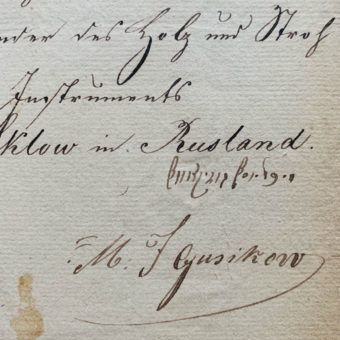 nder des Holz und Stroh
Instruments
klow in Rusland.
M. J Gusikow